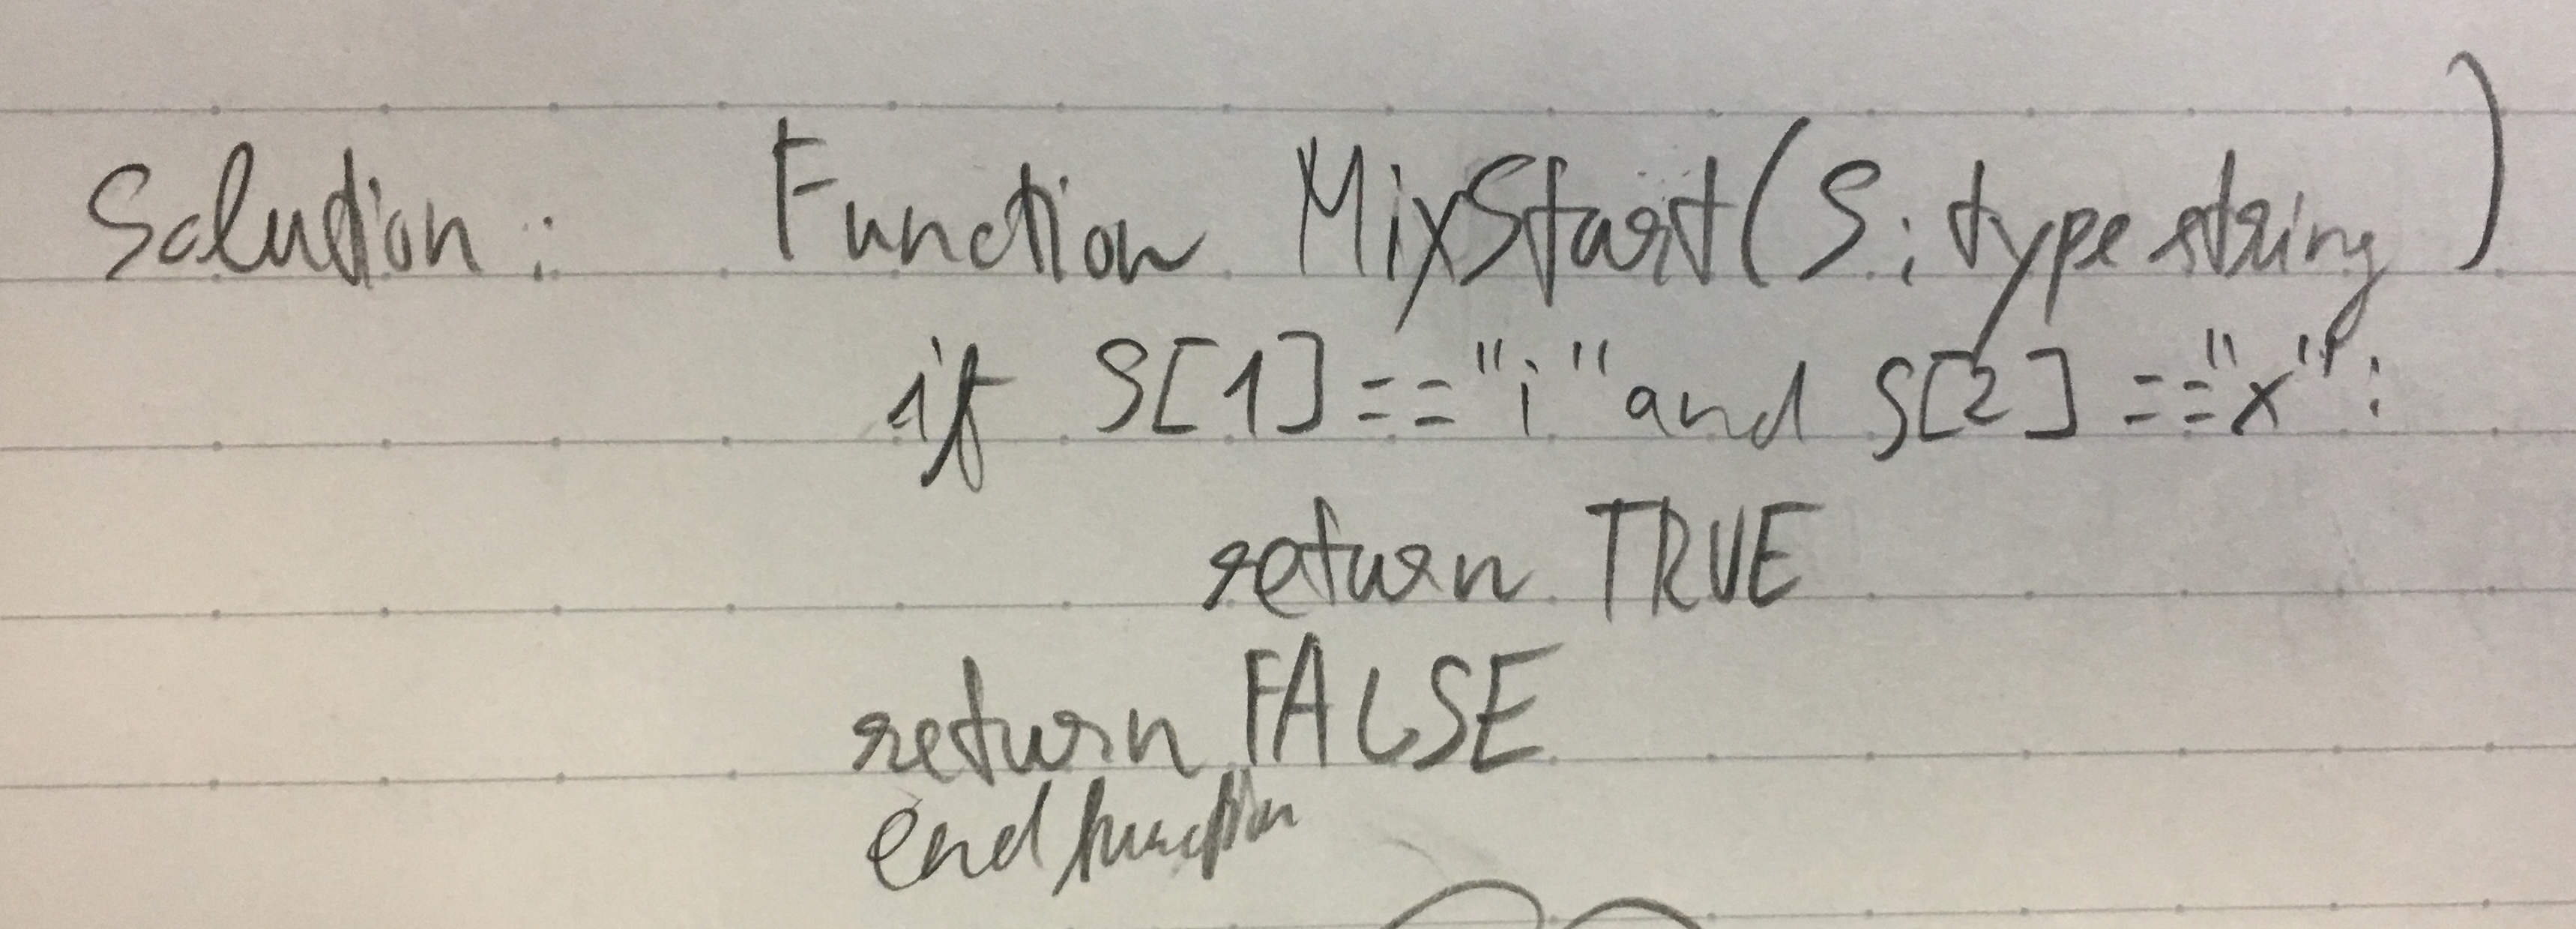 Solution: Function MixStart(S: type string)
if S[1]=="i" and S[2]=="x":
return TRUE
return FALSE
end function